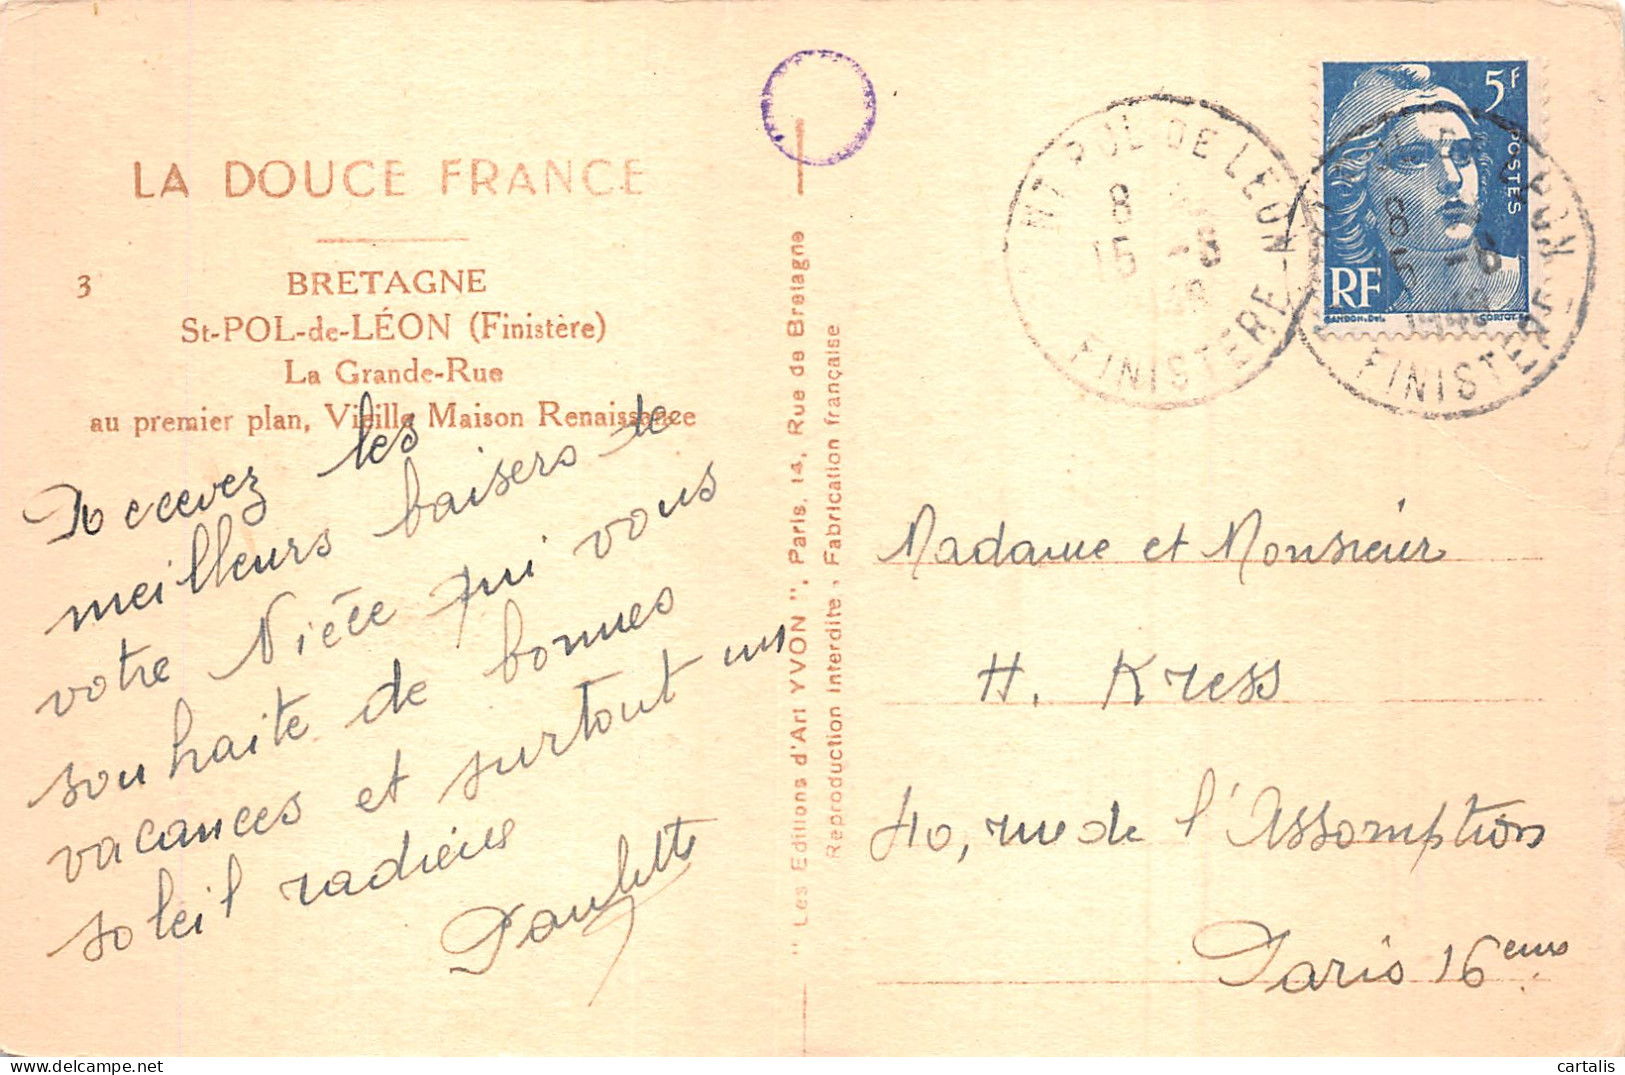 LA DOUCE FRANCE
3
BRETAGNE
St-POL-de-LÉON (Finistère)
La Grande-Rue
au premier plan, Vieille Maison Renaissance
Recevez les
meilleurs baisers de
votre Nièce qui vous
souhaite de bonnes
vacances et surtout un
soleil radieux
Paulette
" Les Editions d'Art YVON ", Paris, 14, Rue de Bretagne
Reproduction Interdite, Fabrication française
NT POL DE LEON
8
15 -8
FINISTERE
5F
POSTES
RF
GANDON. Del.
CORTOT
8
15 -8
FINISTERE
Madame et Monsieur
H. Kress
40, rue de l'Assomption
Paris 16eme
cartalis